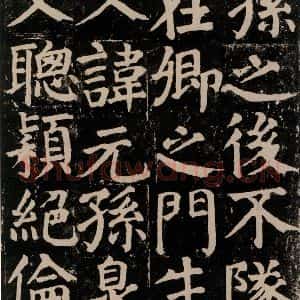 孫之後不隊
卿之門生
諱元孫皇
聰穎絕倫
Shufawang.CN